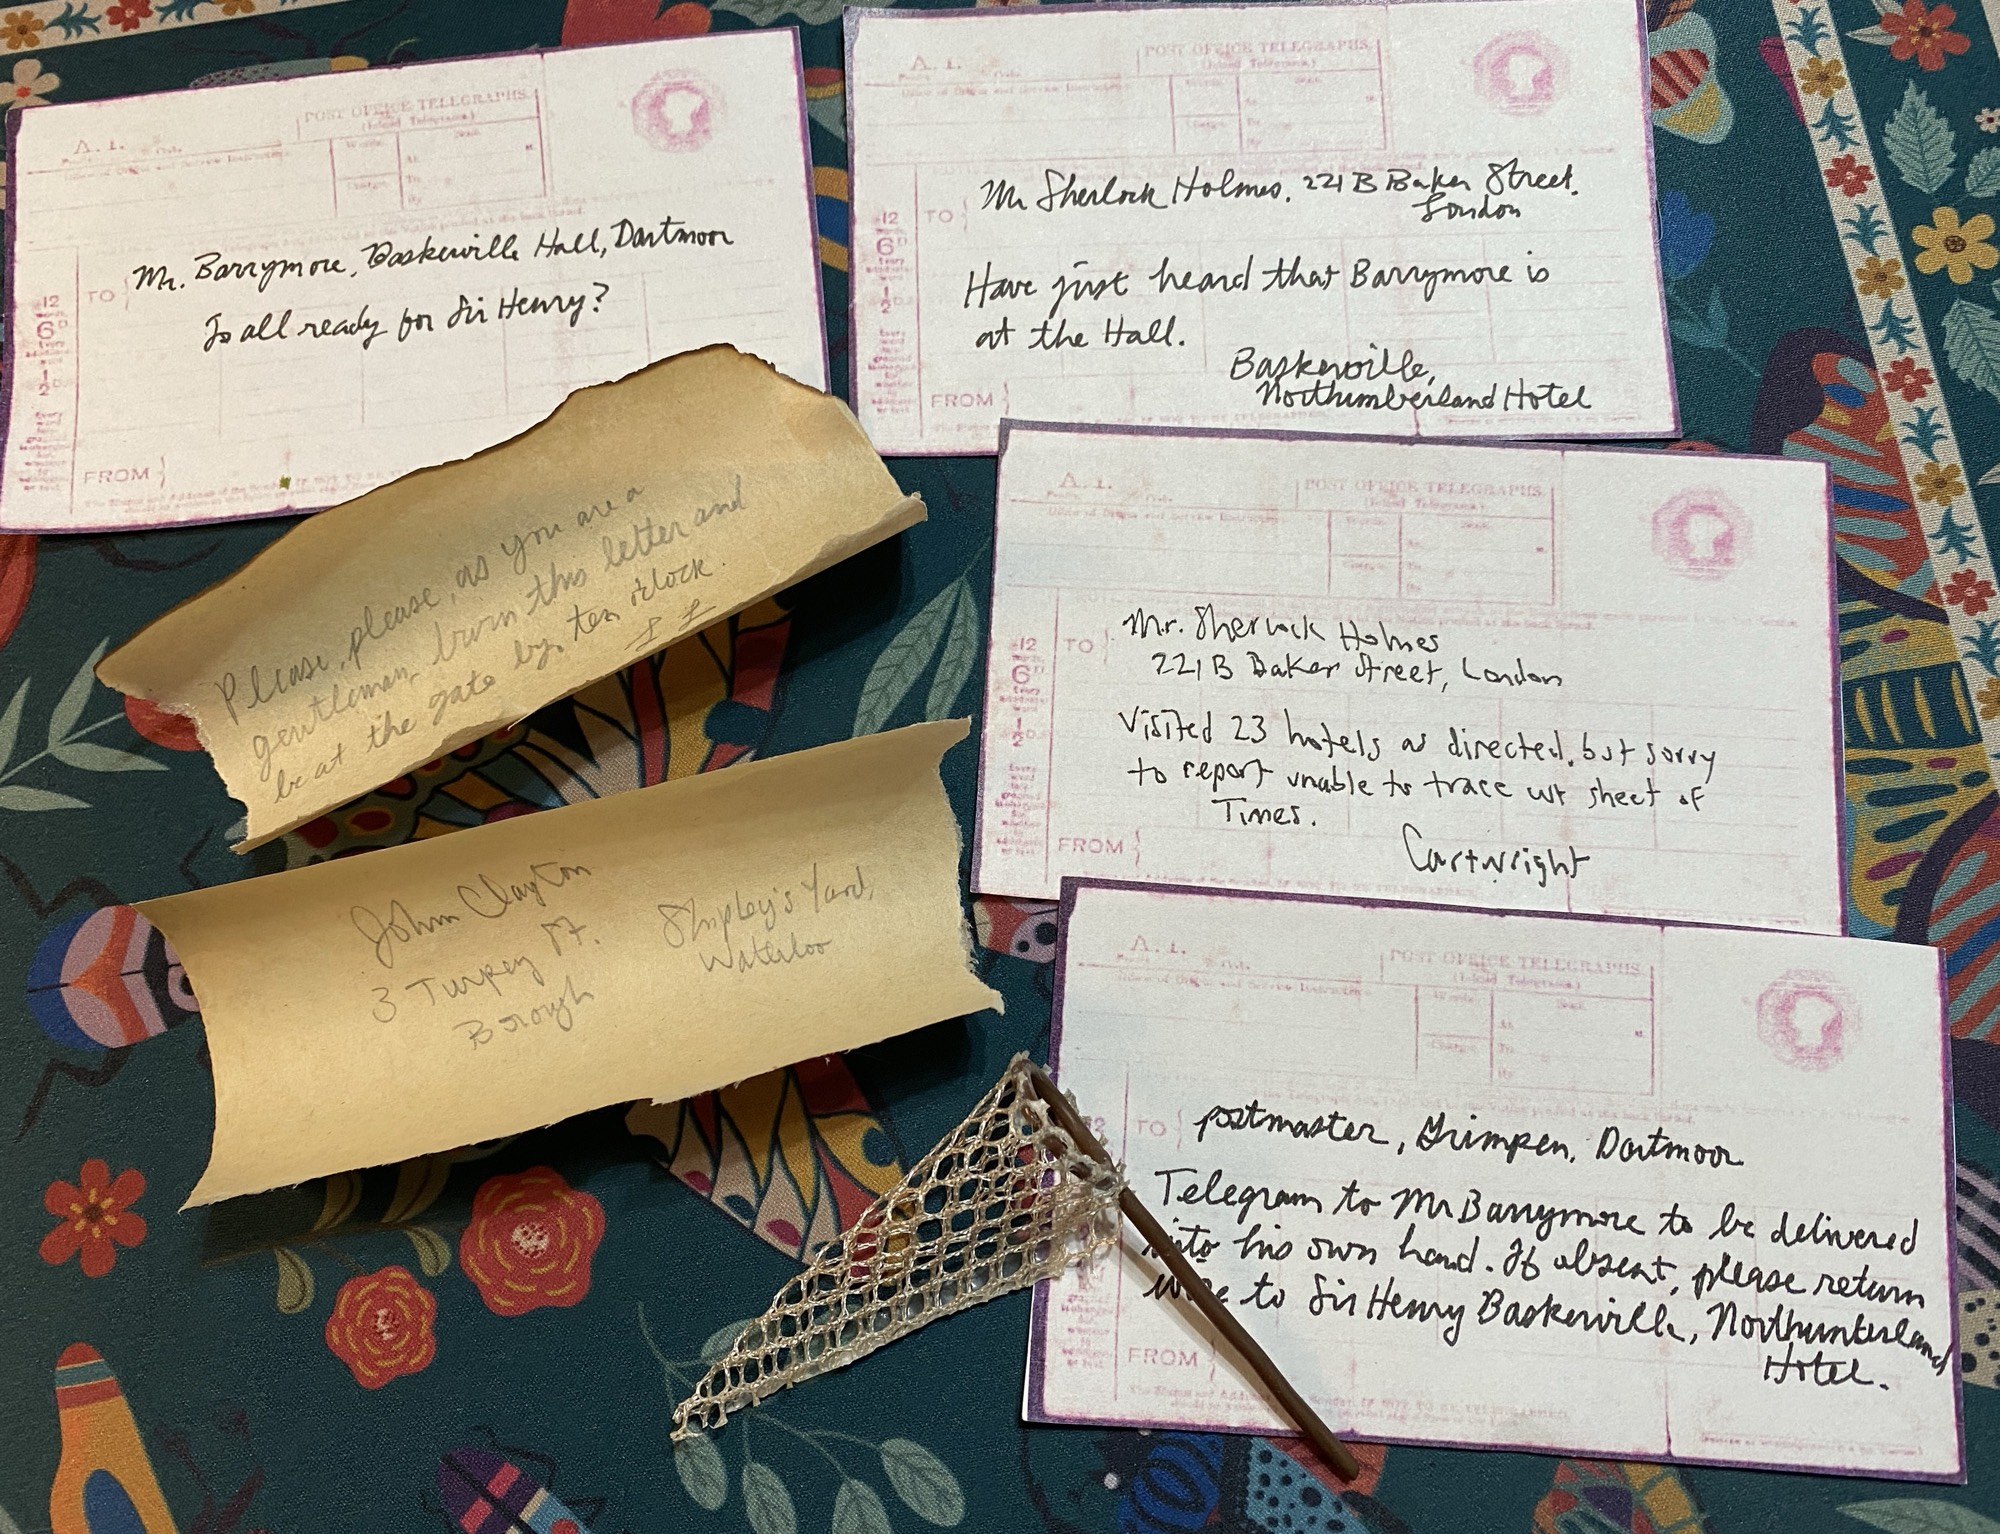 A. 1.
POST OFFICE TELEGRAPHS.
(Inland Telegrams.)
12
6D
1/2
TO
Mr. Barrymore, Baskerville Hall, Dartmoor
Is all ready for Sir Henry?
FROM
A. 1.
POST OFFICE TELEGRAPHS.
(Inland Telegrams.)
12
6D
1/2
TO
Mr Sherlock Holmes, 221 B Baker Street.
London
Have just heard that Barrymore is
at the Hall.
Baskerville,
Northumberland Hotel
FROM
Please, please, as you are a
gentleman, burn this letter and
be at the gate by ten o'clock.
L L
A. 1.
POST OFFICE TELEGRAPHS.
(Inland Telegrams.)
12
6D
1/2
TO
Mr. Sherlock Holmes
221 B Baker Street, London
Visited 23 hotels as directed, but sorry
to report unable to trace cut sheet of
Times.
Cartwright
FROM
John Clayton
3 Turpey St.
Borough
Shipley's Yard,
Waterloo
A. 1.
POST OFFICE TELEGRAPHS.
(Inland Telegrams.)
TO
postmaster, Grimpen, Dartmoor
Telegram to Mr Barrymore to be delivered
into his own hand. If absent, please return
wire to Sir Henry Baskerville, Northumberland
Hotel.
FROM